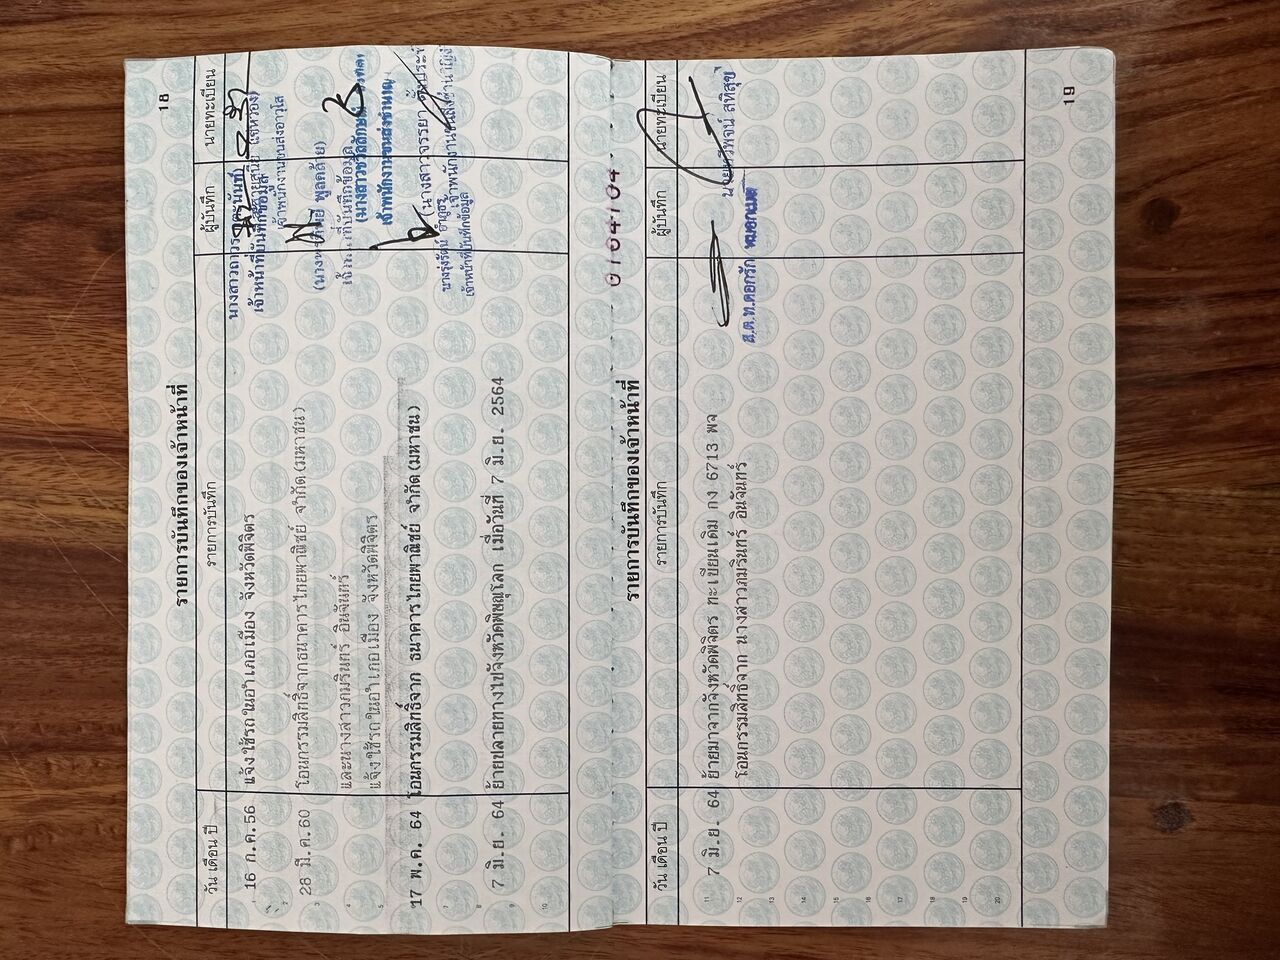 18
รายการบันทึกของเจ้าหน้าที่
วัน เดือน ปี รายการบันทึก ผู้บันทึก นายทะเบียน
16 ก.ค.56 แจ้งใช้รถในอำเภอเมือง จังหวัดพิจิตร
นางสาวถาวร
เจ้าหน้าที่บันทึกข้อมูล
เจ้าพนักงานขนส่งอาวุโส
28 มี.ค.60 โอนกรรมสิทธิ์จากธนาคารไทยพาณิชย์ จำกัด(มหาชน)
พูลคล้าย)
และนางสาวภมรินทร์ อินจันทร์
เจ้าหน้าที่บันทึกข้อมูล
แจ้งใช้รถในอำเภอเมือง จังหวัดพิจิตร
เจ้าพนักงานขนส่งชำนาญ
17 พ.ค. 64 โอนกรรมสิทธิ์จาก ธนาคารไทยพาณิชย์ จำกัด(มหาชน)
(นางสาวจรรยา
นางรุ่งรัตน์
เจ้าพนักงานขนส่งชำนาญ
เจ้าหน้าที่บันทึกข้อมูล
7 มิ.ย. 64 ย้ายปลายทางไปจังหวัดพิษณุโลก เมื่อวันที่ 7 มิ.ย. 2564
2
3
4
5
7
8
9
10
0104104
รายการบันทึกของเจ้าหน้าที่
วัน เดือน ปี รายการบันทึก ผู้บันทึก นายทะเบียน
11 7 มิ.ย. 64 ย้ายมาจากจังหวัดพิจิตร ทะเบียนเดิม กง 6713 พจ
12 โอนกรรมสิทธิ์จาก นางสาวภมรินทร์ อินจันทร์
ส.ต.ท.ดอกรัก หมอกเมต
13
14
15
16
17
18
19
20
19